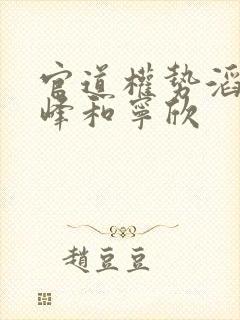 官道權勢滔
峰和寧欣
趙豆豆